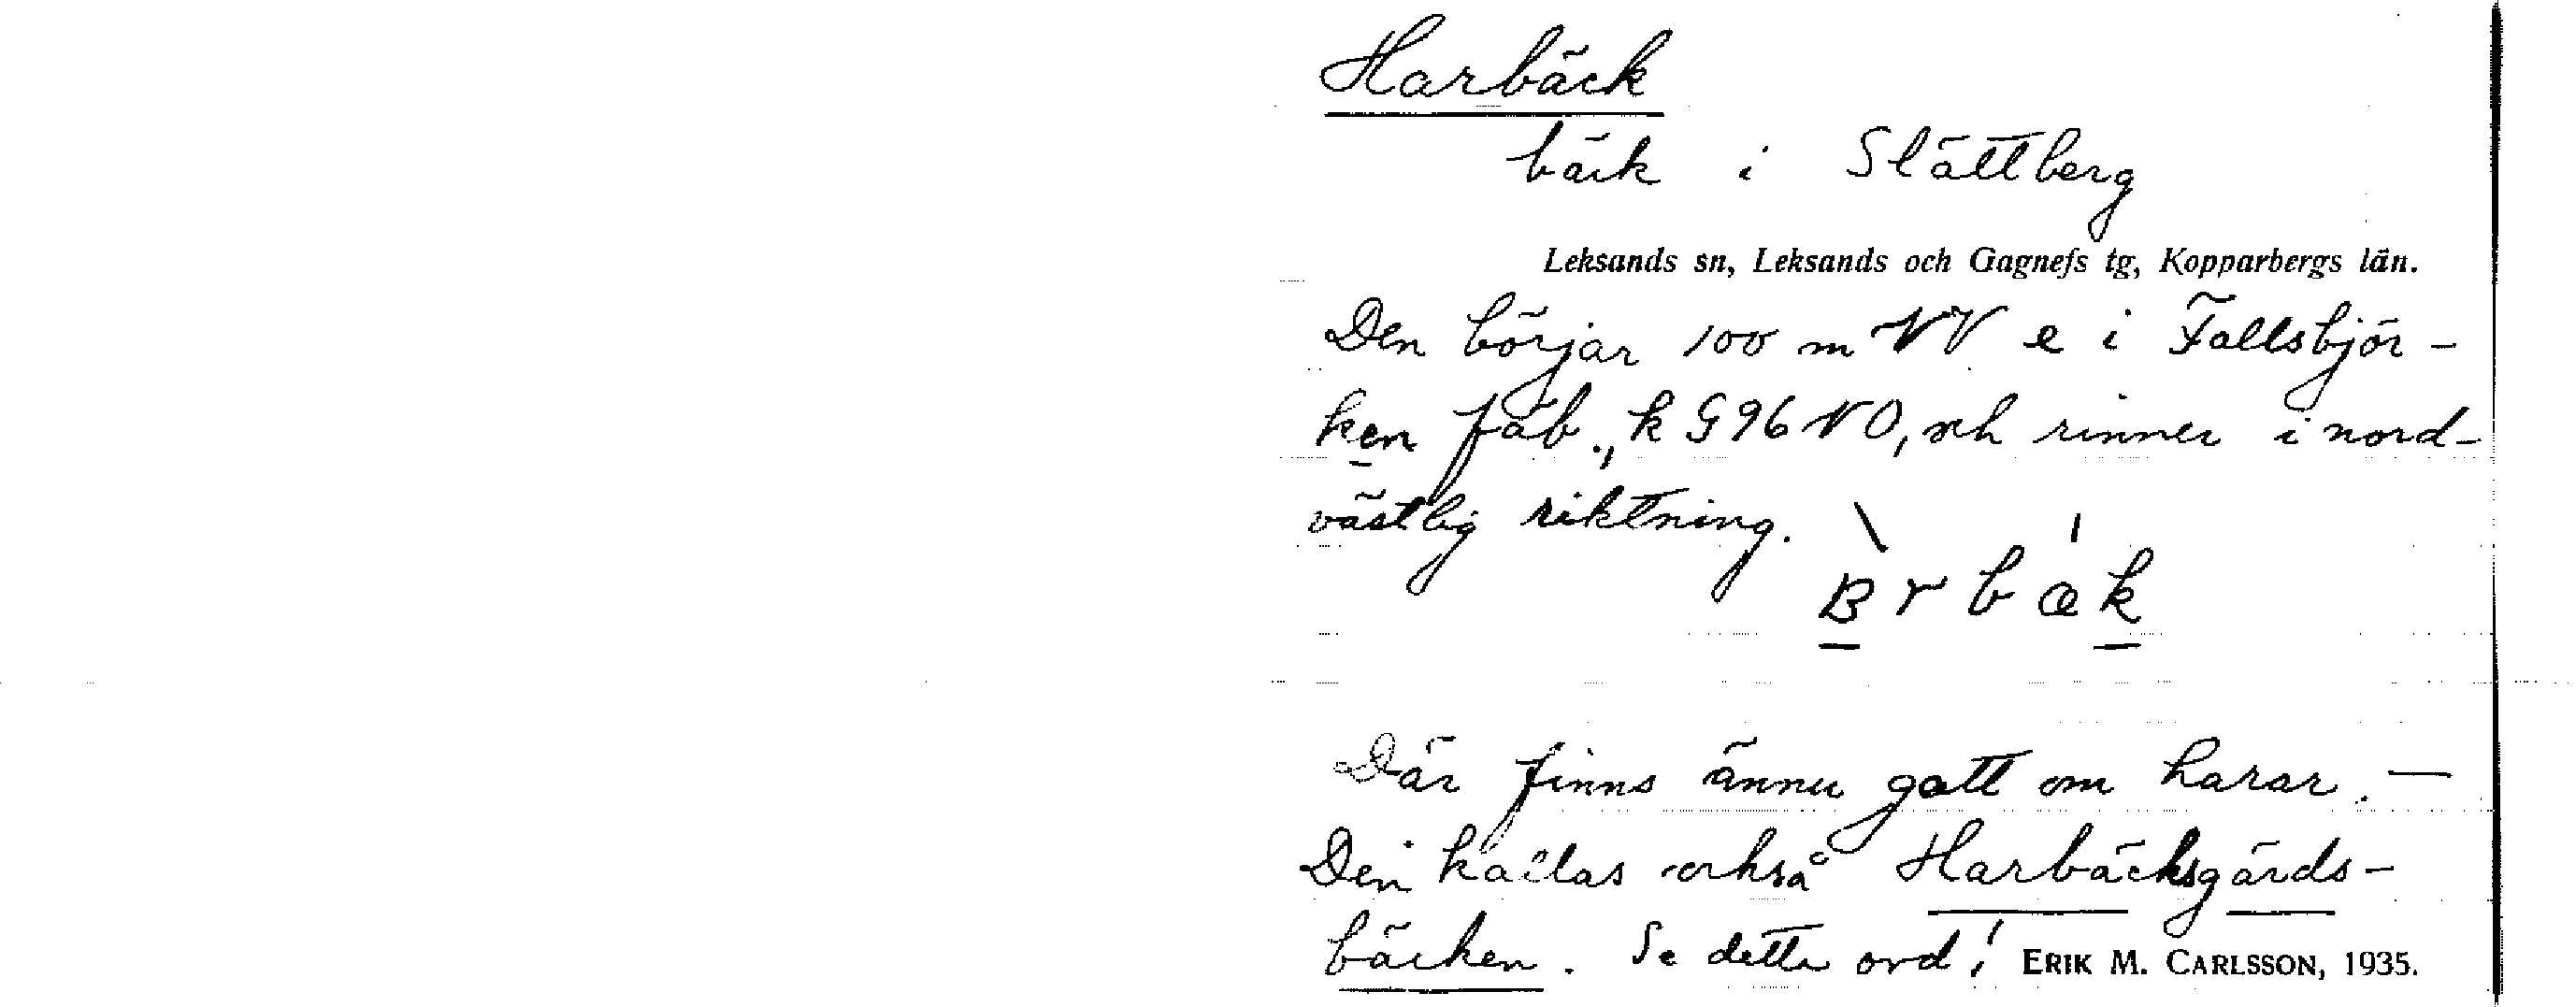 Harbäck
bäck i Slättberg
Leksands sn, Leksands och Gagnefs tg, Kopparbergs län.
Den börjar 100 m NV e i Fallsbjör-
ken fäb., k G 96 NO, och rinner i nord-
västlig riktning.
rbæk
Där finns ännu gott om harar. —
Den kallas också Harbäcksgärds-
bäcken. Se detta ord! ERIK M. CARLSSON, 1935.